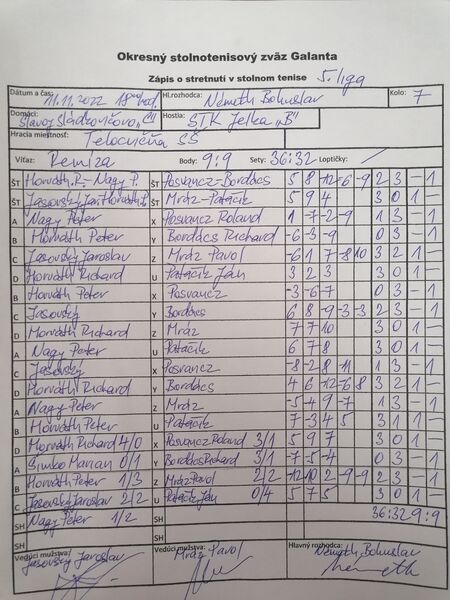 Okresný stolnotenisový zväz Galanta
Zápis o stretnutí v stolnom tenise 5. liga
Dátum a čas: 11.11.2022 18 hod. Hl.rozhodca: Németh Bohuslav Kolo: 7
Domáci: Slavoj Sládkovičovo „C" Hostia: STK Jelka „B"
Hracia miestnosť: Telocvičňa SŠ
Víťaz: Remíza Body: 9:9 Sety: 36:32 Loptičky: /
ŠT Horváth.R - Nagy P. ŠT Posvancz-Bordács 5 8 -12 -6 -9 2 3 - 1
ŠT Jasovský Jar. Horváth P. ŠT Mráz-Patáčik 5 9 4 3 0 1 -
A Nagy Peter X Posvancz Roland 1 -7 -2 -9 1 3 - 1
B Horváth Peter Y Bordács Richard -6 -3 -9 0 3 - 1
C Jasovský Jaroslav Z Mráz Pavol -6 1 7 -8 10 3 2 1 -
D Horváth Richard U Patáčik Ján 3 2 3 3 0 1 -
B Horváth Peter X Posvancz -3 -6 -7 0 3 - 1
C Jasovský Y Bordács 6 8 -9 -3 -3 2 3 - 1
D Horváth Richard Z Mráz 7 7 10 3 0 1 -
A Nagy Peter U Patáčik 6 7 8 3 0 1 -
C Jasovský X Posvancz -8 -2 8 -11 1 3 - 1
D Horváth Richard Y Bordács 4 6 -12 -6 8 3 2 1 -
A Nagy Peter Z Mráz -5 -4 9 -7 1 3 - 1
B Horváth Peter U Patáčik 7 -3 4 5 3 1 1 -
D Horváth Richard 4/0 X Posvancz Roland 3/1 5 9 7 3 0 1
A Šimko Marian 0/1 Y Bordács Richard 3/1 -7 -5 -4 0 3 - 1
B Horváth Peter 1/3 Z Mráz Pavol 2/2 -12 10 2 -9 -9 2 3 - 1
C Jasovský Jaroslav 2/2 U Patáčik Ján 0/4 5 7 5 3 0 1 -
SH Nagy Peter 1/2 SH 36:32 9:9
SH SH
Vedúci mužstva: Jasovský Jaroslav Vedúci mužstva: Mráz Pavol Hlavný rozhodca: Németh Bohuslav
Németh